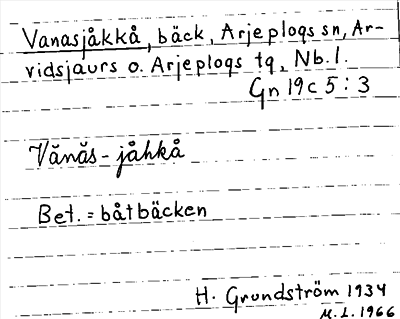 Vanasjåkkå, bäck, Arjeplogs sn, Ar-
vidsjaurs o. Arjeplogs tg, Nb. l.
Gn 19c 5 : 3
Vănăs-jåhkå
Bet. = båtbäcken
H. Grundström 1934
M. L. 1966